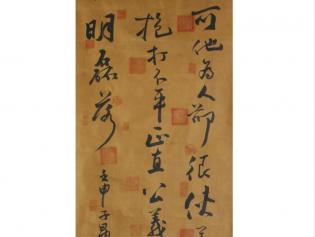 可他為人卻很俠
抱打不平正直公義
明磊落
壬申子昂